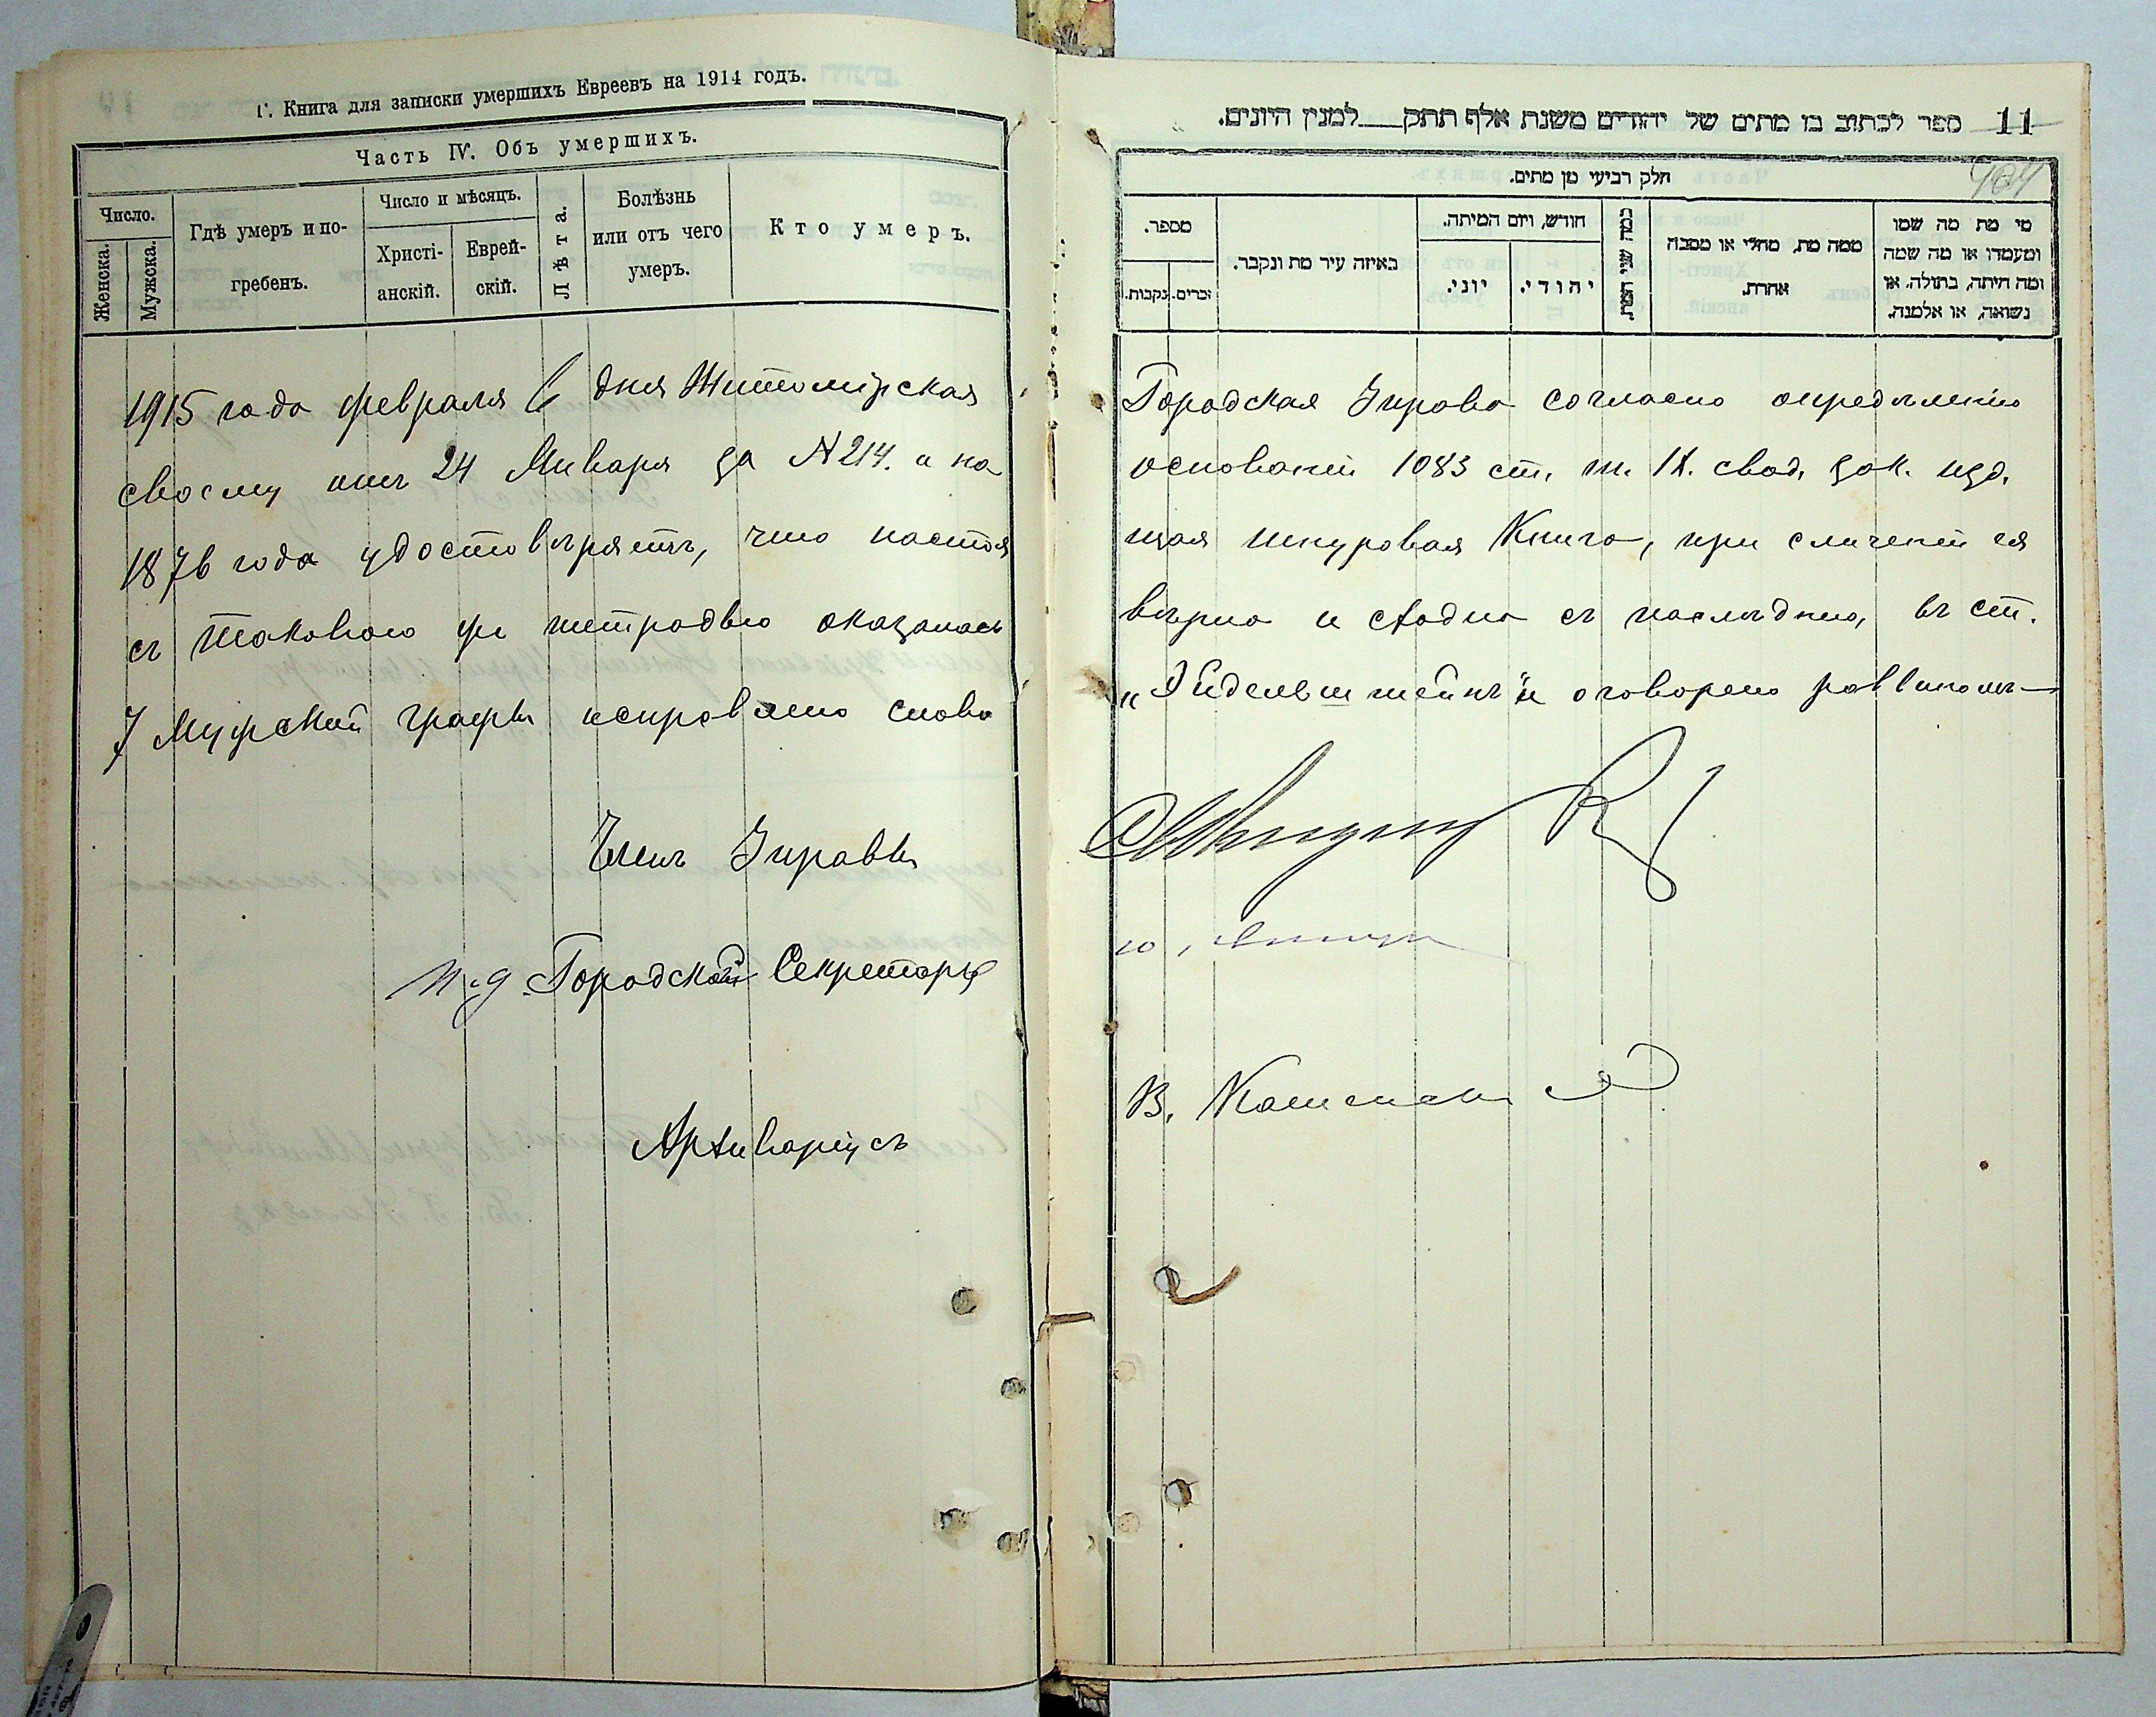 Г. Книга для записки умершихъ Евреевъ на 1914 годъ.
Часть IV. Объ умершихъ.
Число.
Женска.
Мужска.
Гдѣ умеръ и по-
гребенъ.
Число и мѣсяцъ.
Христі-
анскій.
Еврей-
скій.
Лѣта.
Болѣзнь
или отъ чего
умеръ.
Кто умеръ.
1915 года февраля 6 дня Житомірская
своему отъ 24 Января за №214. и на
1876 года удостовѣряетъ, что настоя
съ таковою же тетрадью оказалась
7 Мужской графы исправлено слово
Членъ Управы
И.д. Городской Секретарь
Архиваріусъ
11 ספר לכתוב בו מתים של יהודים משנת אלף תתק למנין היונים.
904
חלק רביעי מן מתים.
מספר.
זכרים.
נקבות.
באיזה עיר מת ונקבר.
חודש, ויום המיתה.
יוני.
יהודי.
כמה שני המת.
ממה מת, מחלי או מסבה
אחרת.
מי מת מה שמו
ומעמדו או מה שמה
ומה היתה, בתולה, או
נשואה, או אלמנה.
Городская Управа согласно опредѣленію
основаніи 1083 ст. т. IX. свод. зак. изд.
щая шнуровая Книга, при сличеніи ея
вѣрна и сходна съ послѣднею, въ ст.
„Эйдельштейнъ" и оговорено раввиномъ
В.